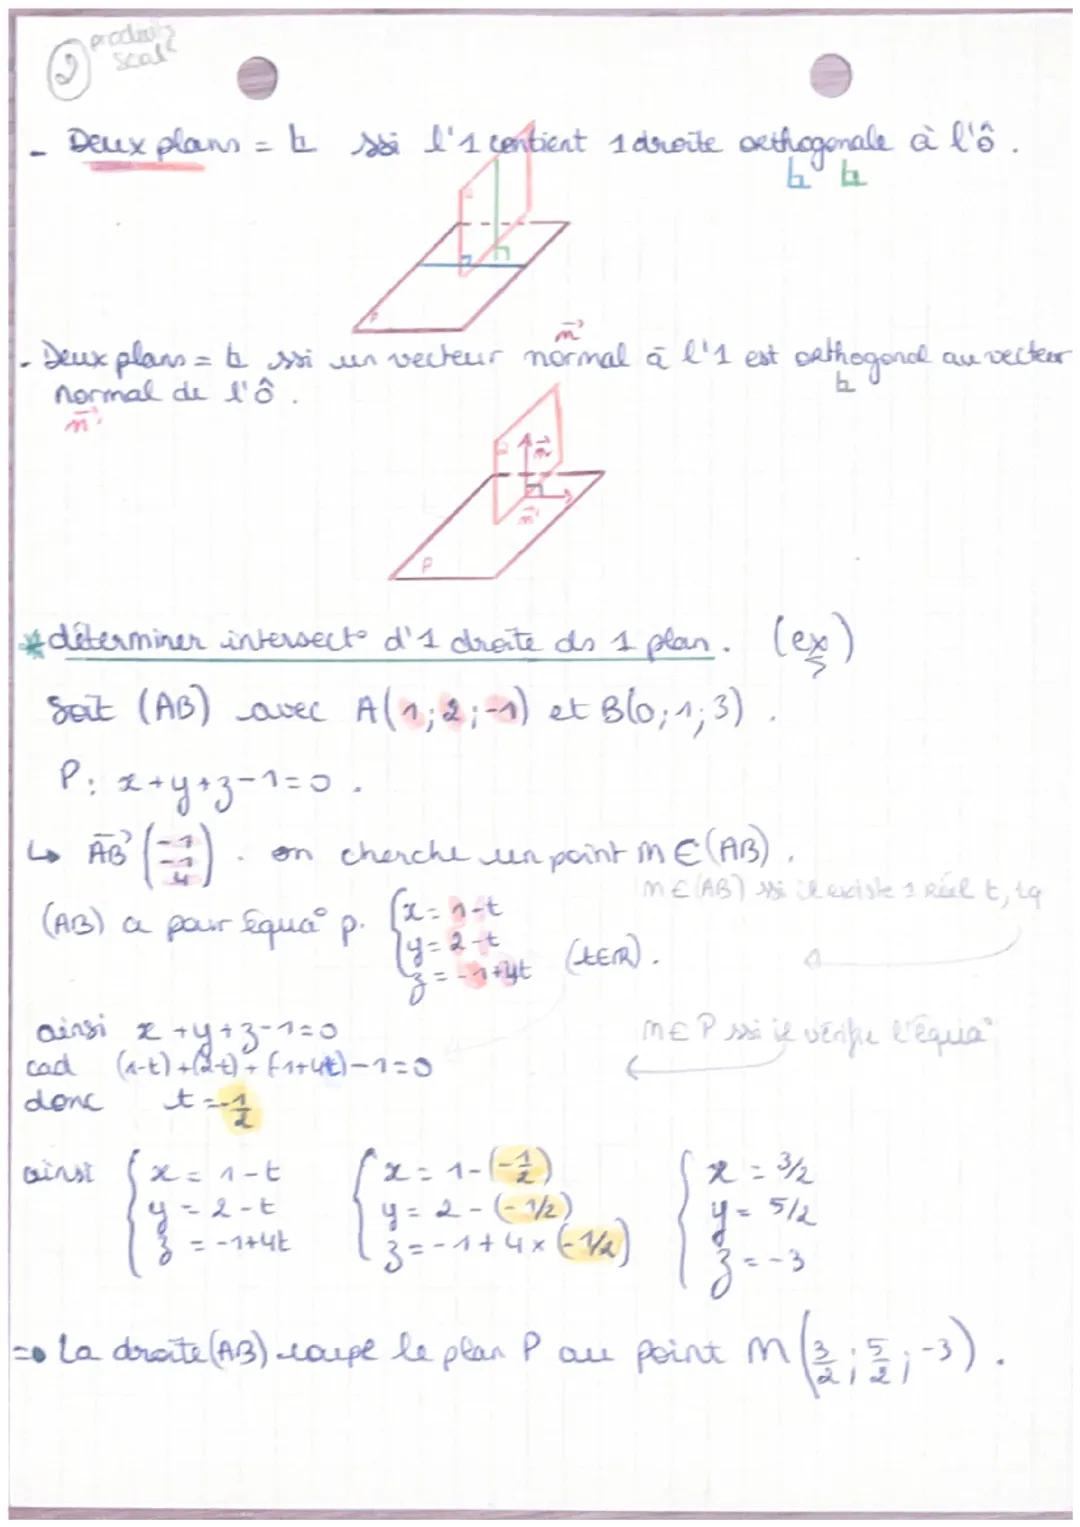 2 produits
scal
- Deux plans = ⊥ ssi l'1 contient 1 droite orthogonale à l'ô.
⊥ ⊥
P
n⃗
- Deux plans = ⊥ ssi un vecteur normal à l'1 est orthogonal au vecteur
normal de l'ô.
⊥
n⃗'
n⃗
n⃗'
P
* déterminer intersect° d'1 droite ds 1 plan. (ex)
Soit (AB) avec A(1;2;-1) et B(0;1;3).
P: x+y+z-1=0.
↳ AB⃗ (-1 -1 4). on cherche un point M ∈ (AB).
M ∈ (AB) ssi il existe 1 réel t, tq
(AB) a pour équa° p. { x = 1-t
y = 2-t
z = -1+4t (t∈R).
ainsi x+y+z-1=0
M ∈ P ssi il vérifie l'équa°
cad (1-t)+(2-t)+(-1+4t)-1=0
donc t = -1/2
ainsi { x = 1-t { x = 1-(-1/2) { x = 3/2
y = 2-t y = 2-(-1/2) y = 5/2
z = -1+4t z = -1+4×(-1/2) z = -3
⇒ La droite (AB) coupe le plan P au point M(3/2; 5/2; -3).